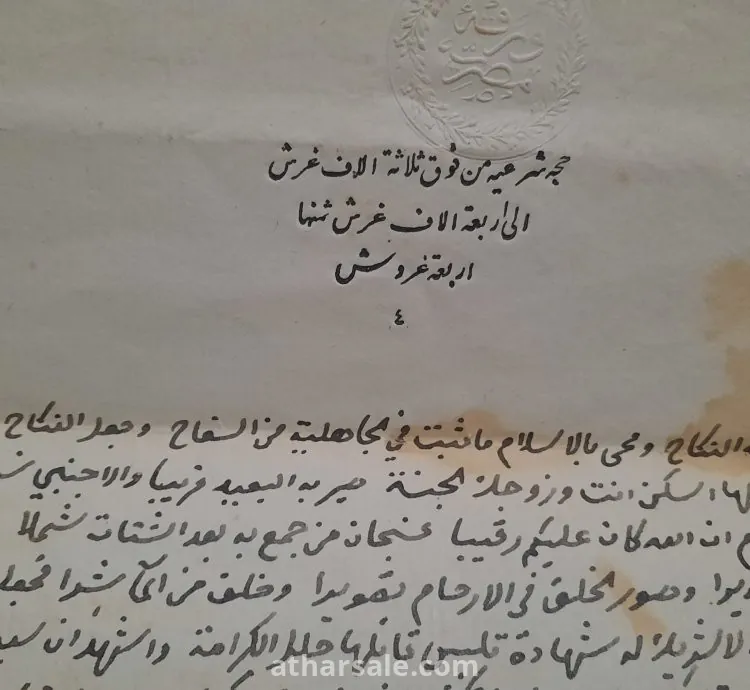 ورقة
مصرية
حجه شرعيه من فوق ثلاثة الاف غرش
الى اربعة الاف غرش ثمنها
اربعة غروش
٤
النكاح ومحى بالاسلام ما ثبت في الجاهلية من السفاح وجعل النكاح
اسكن انت وزوجك الجنة صير به البعيد قريبا والاجنبي
ان الله كان عليكم رقيبا فسبحان من جمع به بعد الشتات شملا
وصور الخلق في الارحام تصويرا وخلق من الماء بشرا فجعله
لا شريك له شهادة تلبس قائلها حلل الكرامة واشهد ان
atharsale.com